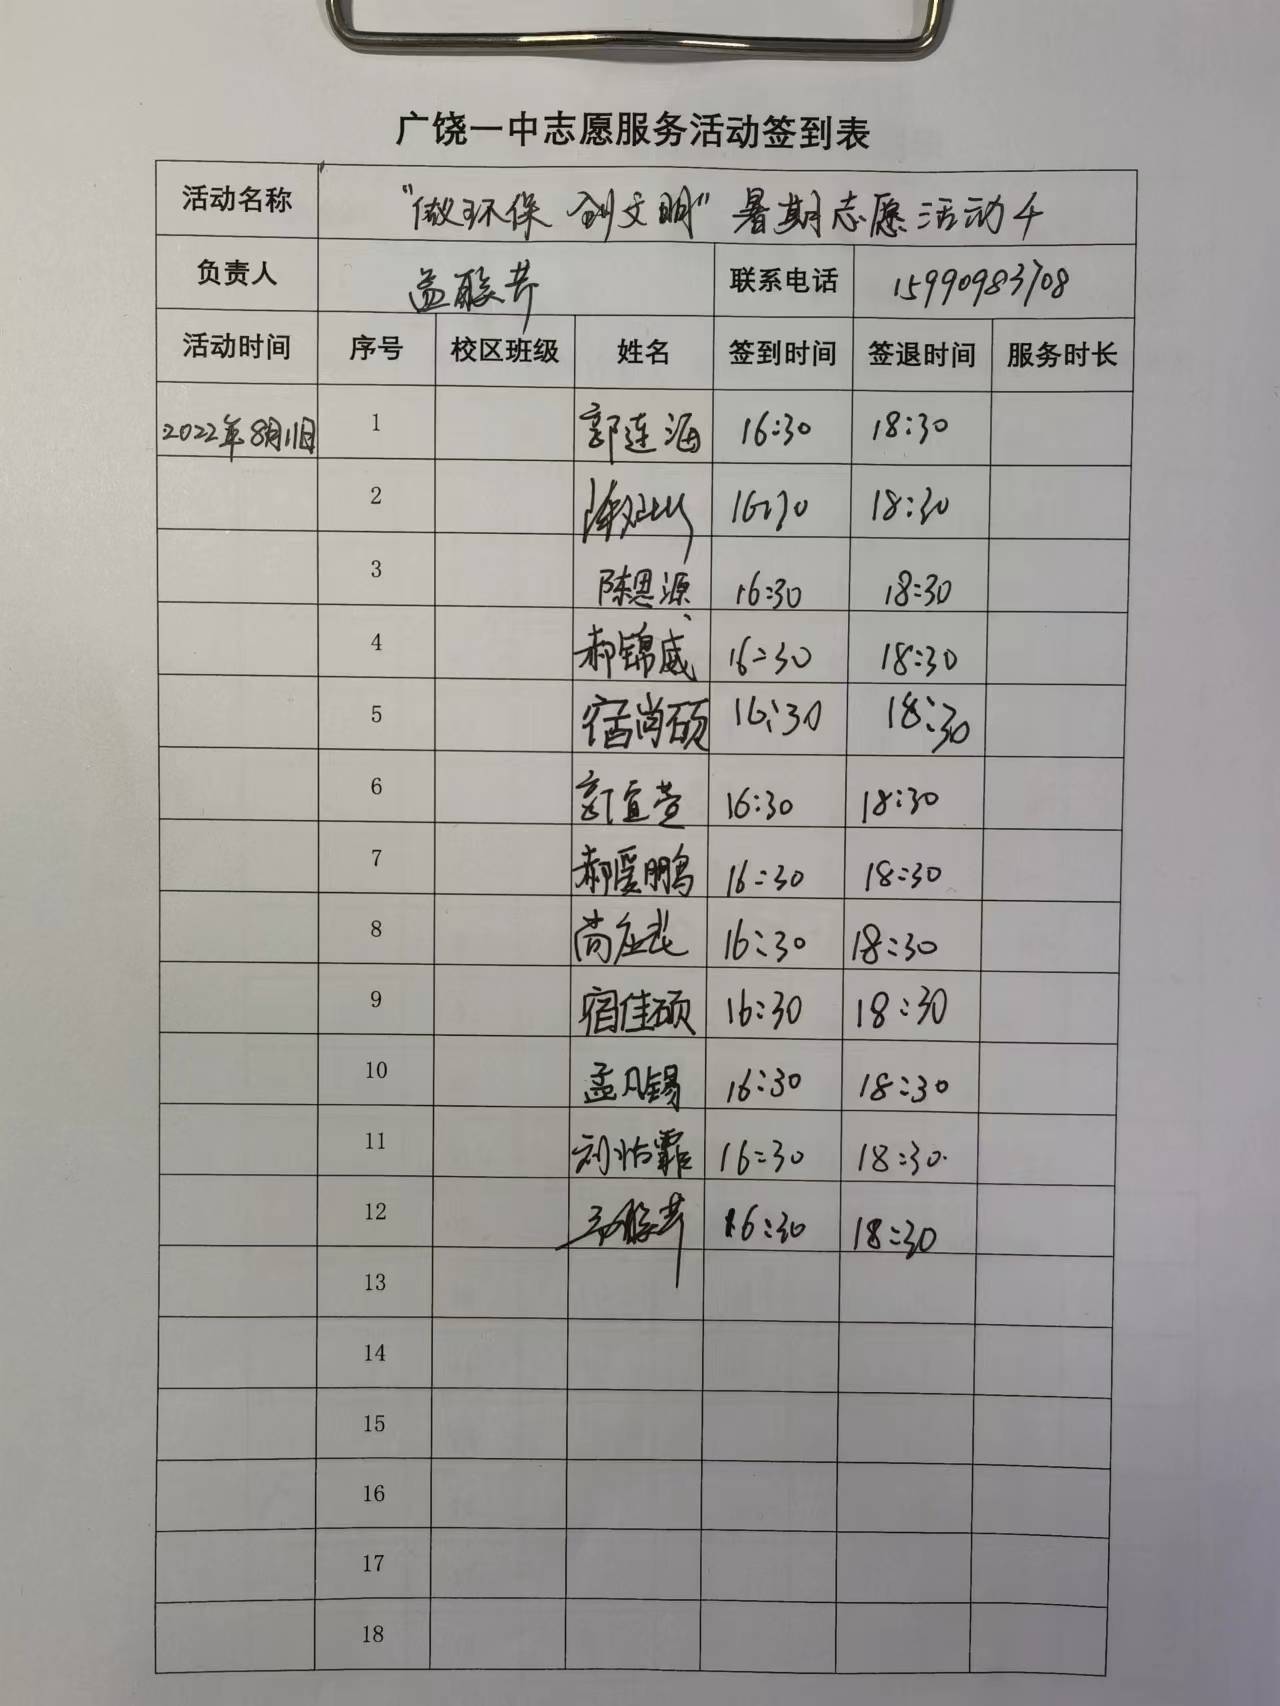 广饶一中志愿服务活动签到表
活动名称 "做环保 创文明" 暑期志愿活动4
负责人 联系电话 15990983708
活动时间 序号 校区班级 姓名 签到时间 签退时间 服务时长
2022年8月11日 1 郭连海 16:30 18:30
2 16:30 18:30
3 陈思源 16:30 18:30
4 郝锦威 16:30 18:30
5 宿尚硕 16:30 18:30
6 郭宜萱 16:30 18:30
7 郝爱鹏 16:30 18:30
8 尚 16:30 18:30
9 宿佳硕 16:30 18:30
10 孟凡锡 16:30 18:30
11 刘怡霏 16:30 18:30
12 16:30 18:30
13
14
15
16
17
18